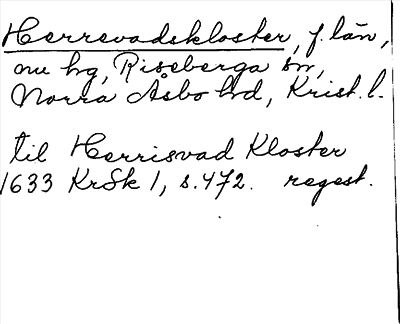 Herrevadskloster, f. län,
nu hg, Riseberga sn,
Norra Åsbo hd, Krist. l.
til Herrisvad Kloster
1633 KrSk 1, s. 472. regest.